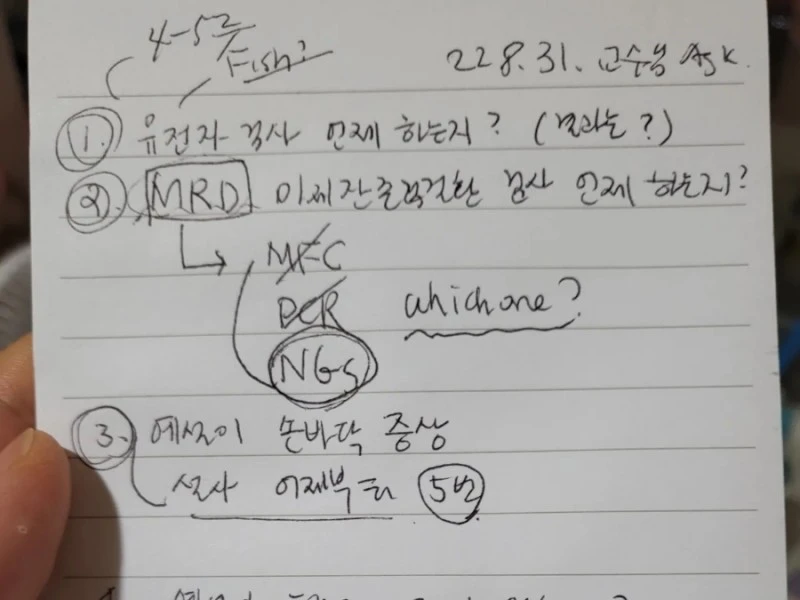 4-5주
Fish?
22 8.31. 교수님 Ask.
1. 유전자 검사 언제 하는지? (결과는?)
2. MRD 미세잔존백혈병 검사 언제 하는지?
MFC
PCR which one?
NGS
3. 예설이 손바닥 증상
설사 어제부터 5번